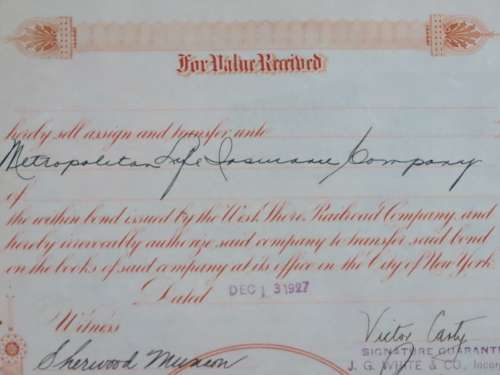 For Value Received
hereby sell assign and transfer unto
Metropolitan Life Insurance Company
of
the within bond issued by the West Shore Railroad Company, and
hereby irrevocably authorize said company to transfer said bond
on the books of said company at its office in the City of New York.
Dated DEC 13 1927
Witness
Victor Carty
SIGNATURE GUARANTE
Sherwood
J. G. WHITE & CO., Incor